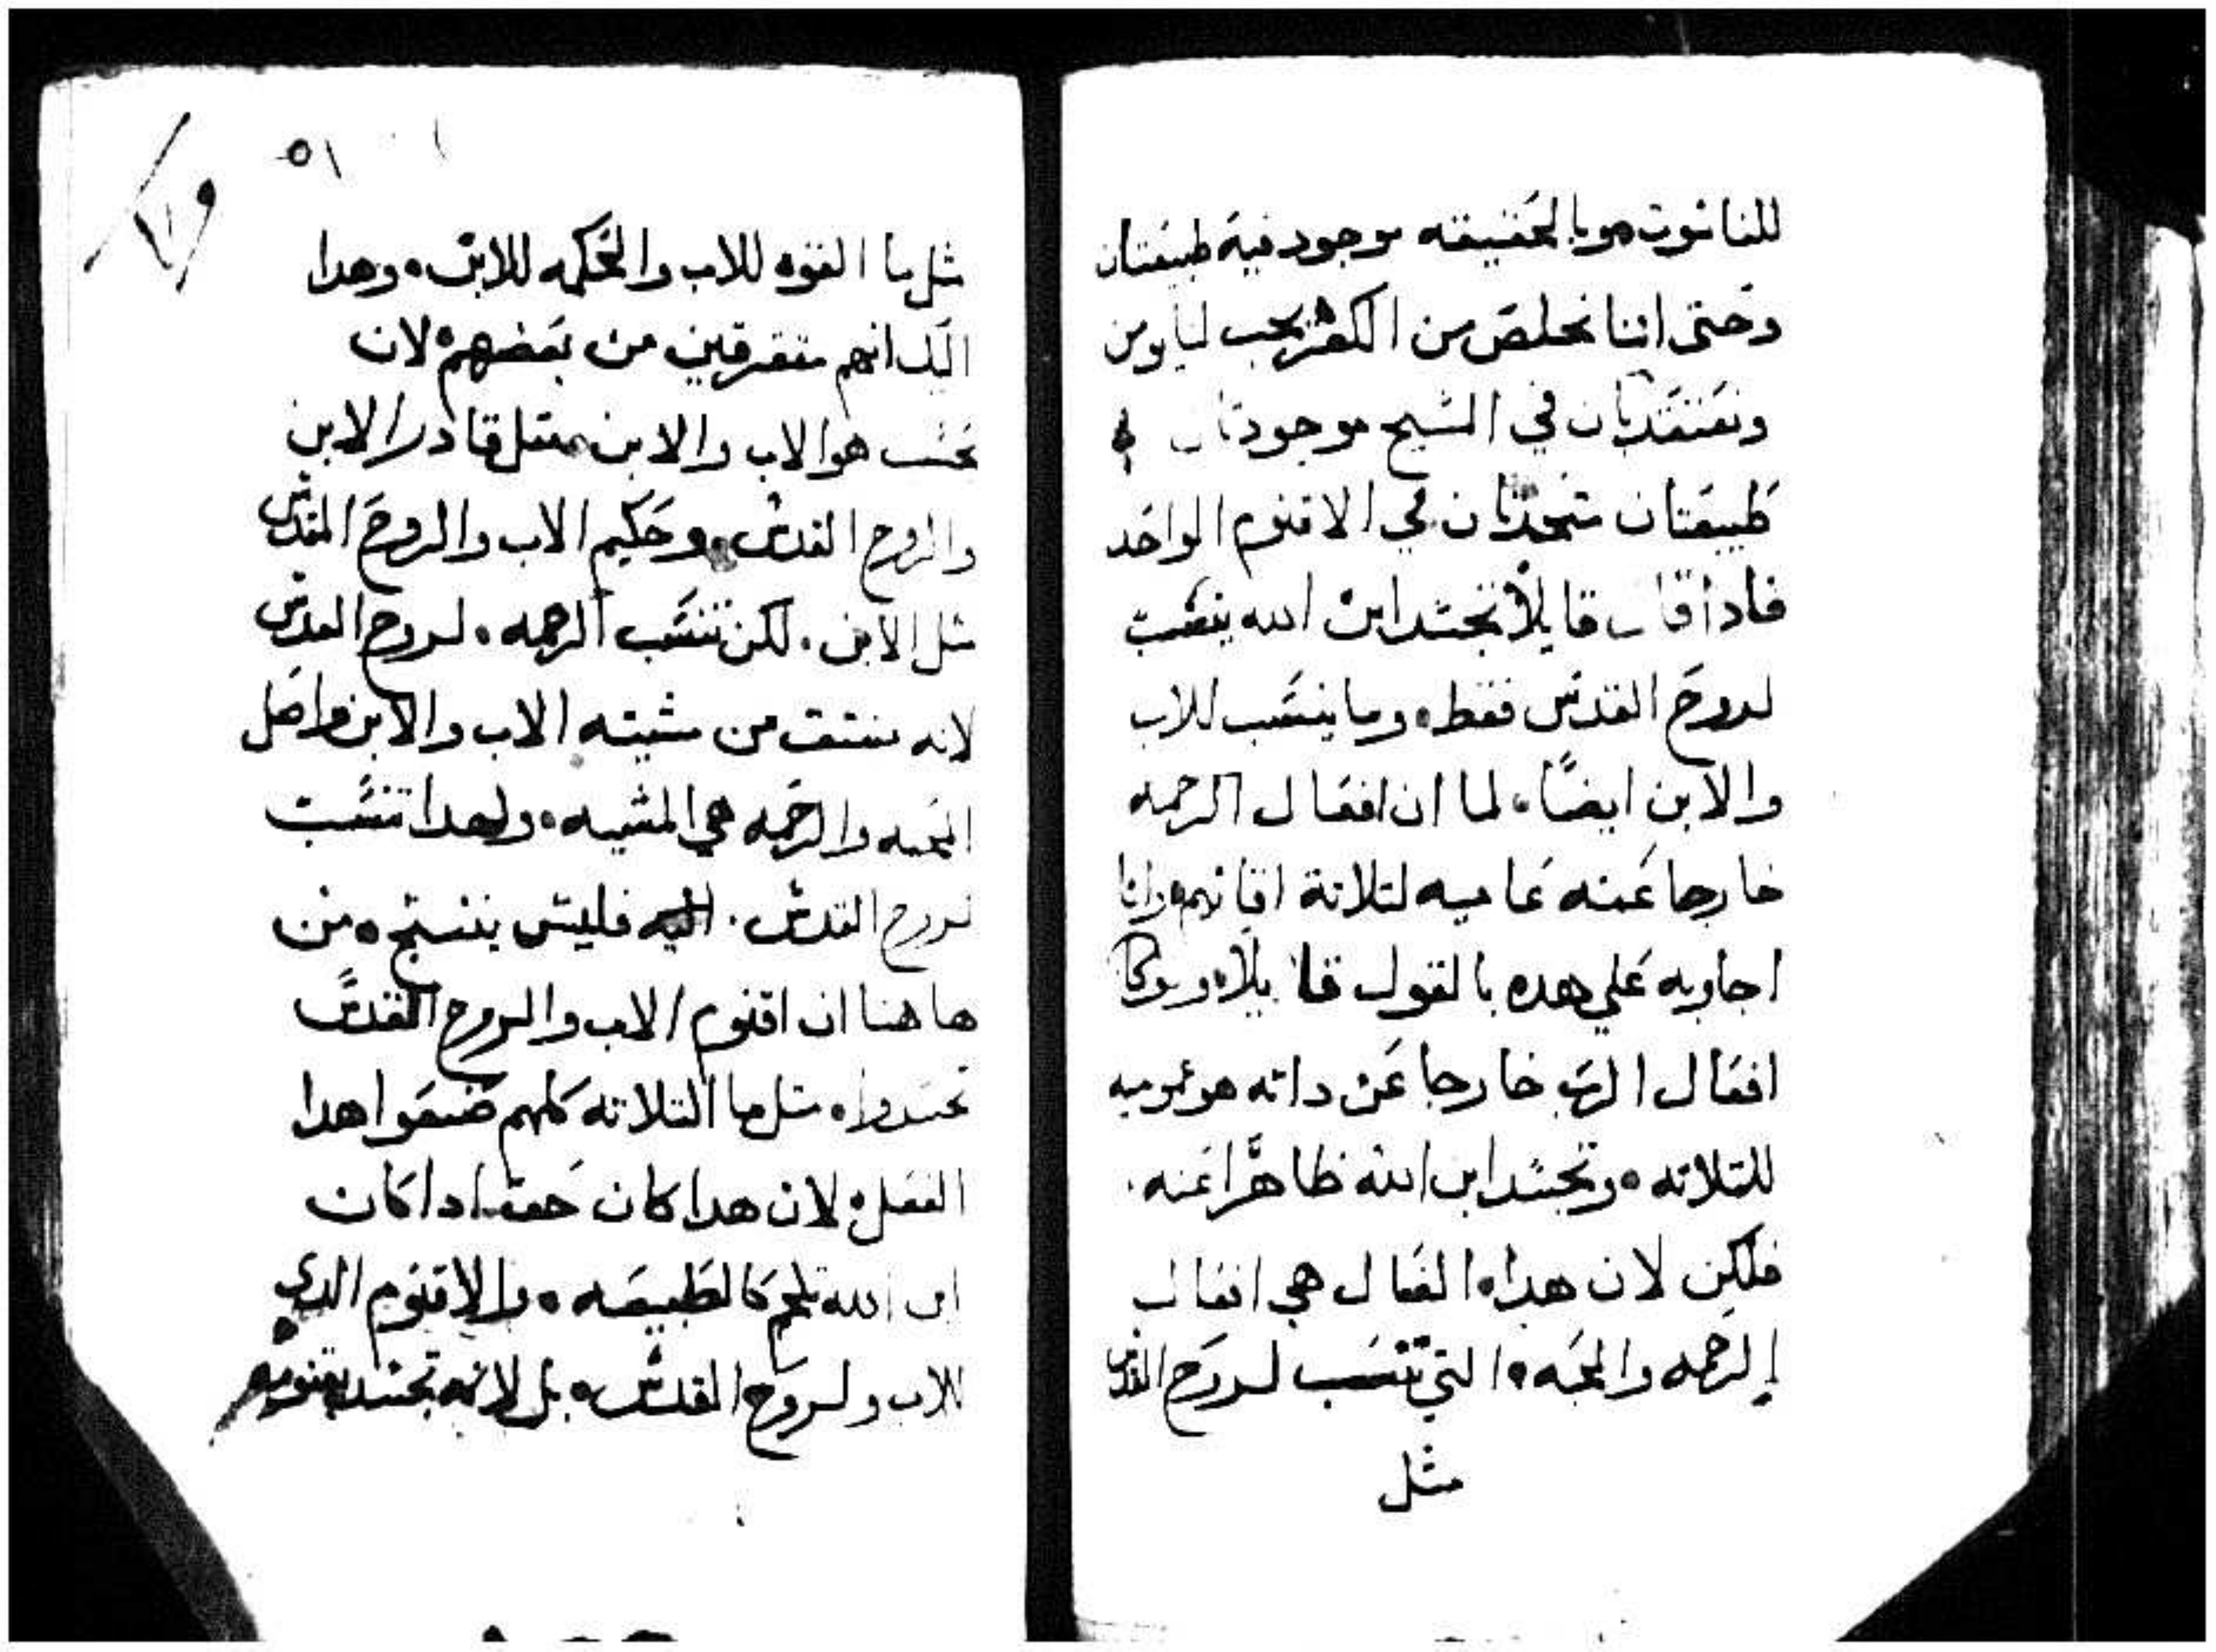 للناسوت هو بالحقيقه موجود فيه طبيعتان
وحتى اننا نخلص من الكفر يجب لنا نومن
ونعتقد بان في المسيح موجودتان
طبيعتان متحدتان في الاقنوم الواحد
فادا قال قايلاً تجسد ابن الله ينسب
لروح القدس فقط، وما ينسب للاب
والابن ايضاً، لما ان افعال الرحمه
خارجا عنه عاميه لتلاتة اقانيم، وانا
اجاوبه علي هده بالقول قايلاً،
افعال الرب خارجا عن داته هو عموميه
للتلاته، وتجسد ابن الله ظاهراً عنه.
فلكن لان هدا، الفعال هي افعال
الرحمه والمحبه، التي تنسب لروح القدس
مثل
٥١
مثل ما القوه للاب والحكمه للابن، وهدا
انهم متفرقين من بعضهم، لان
هو الاب والابن متل قادر الابن
والروح القدس، وحكيم الاب والروح القدس
متل الابن. لكن تنسب الرحمه، لروح القدس
لانه منبتق من مشيته الاب والابن واصل
المحبه والرحمه هي المشيه، ولهدا تنسب
لروح القدس. فليس ينتج، من
هاهنا ان اقنوم الاب والروح القدس
تجسدوا، متل ما التلاته كلهم صنعوا هدا
الفعل، لان هدا كان حقا ادا كان
ابن الله تلحم كالطبيعه، والاقنوم الدي
للاب ولروح القدس، بل لانه تجسد بقنومه